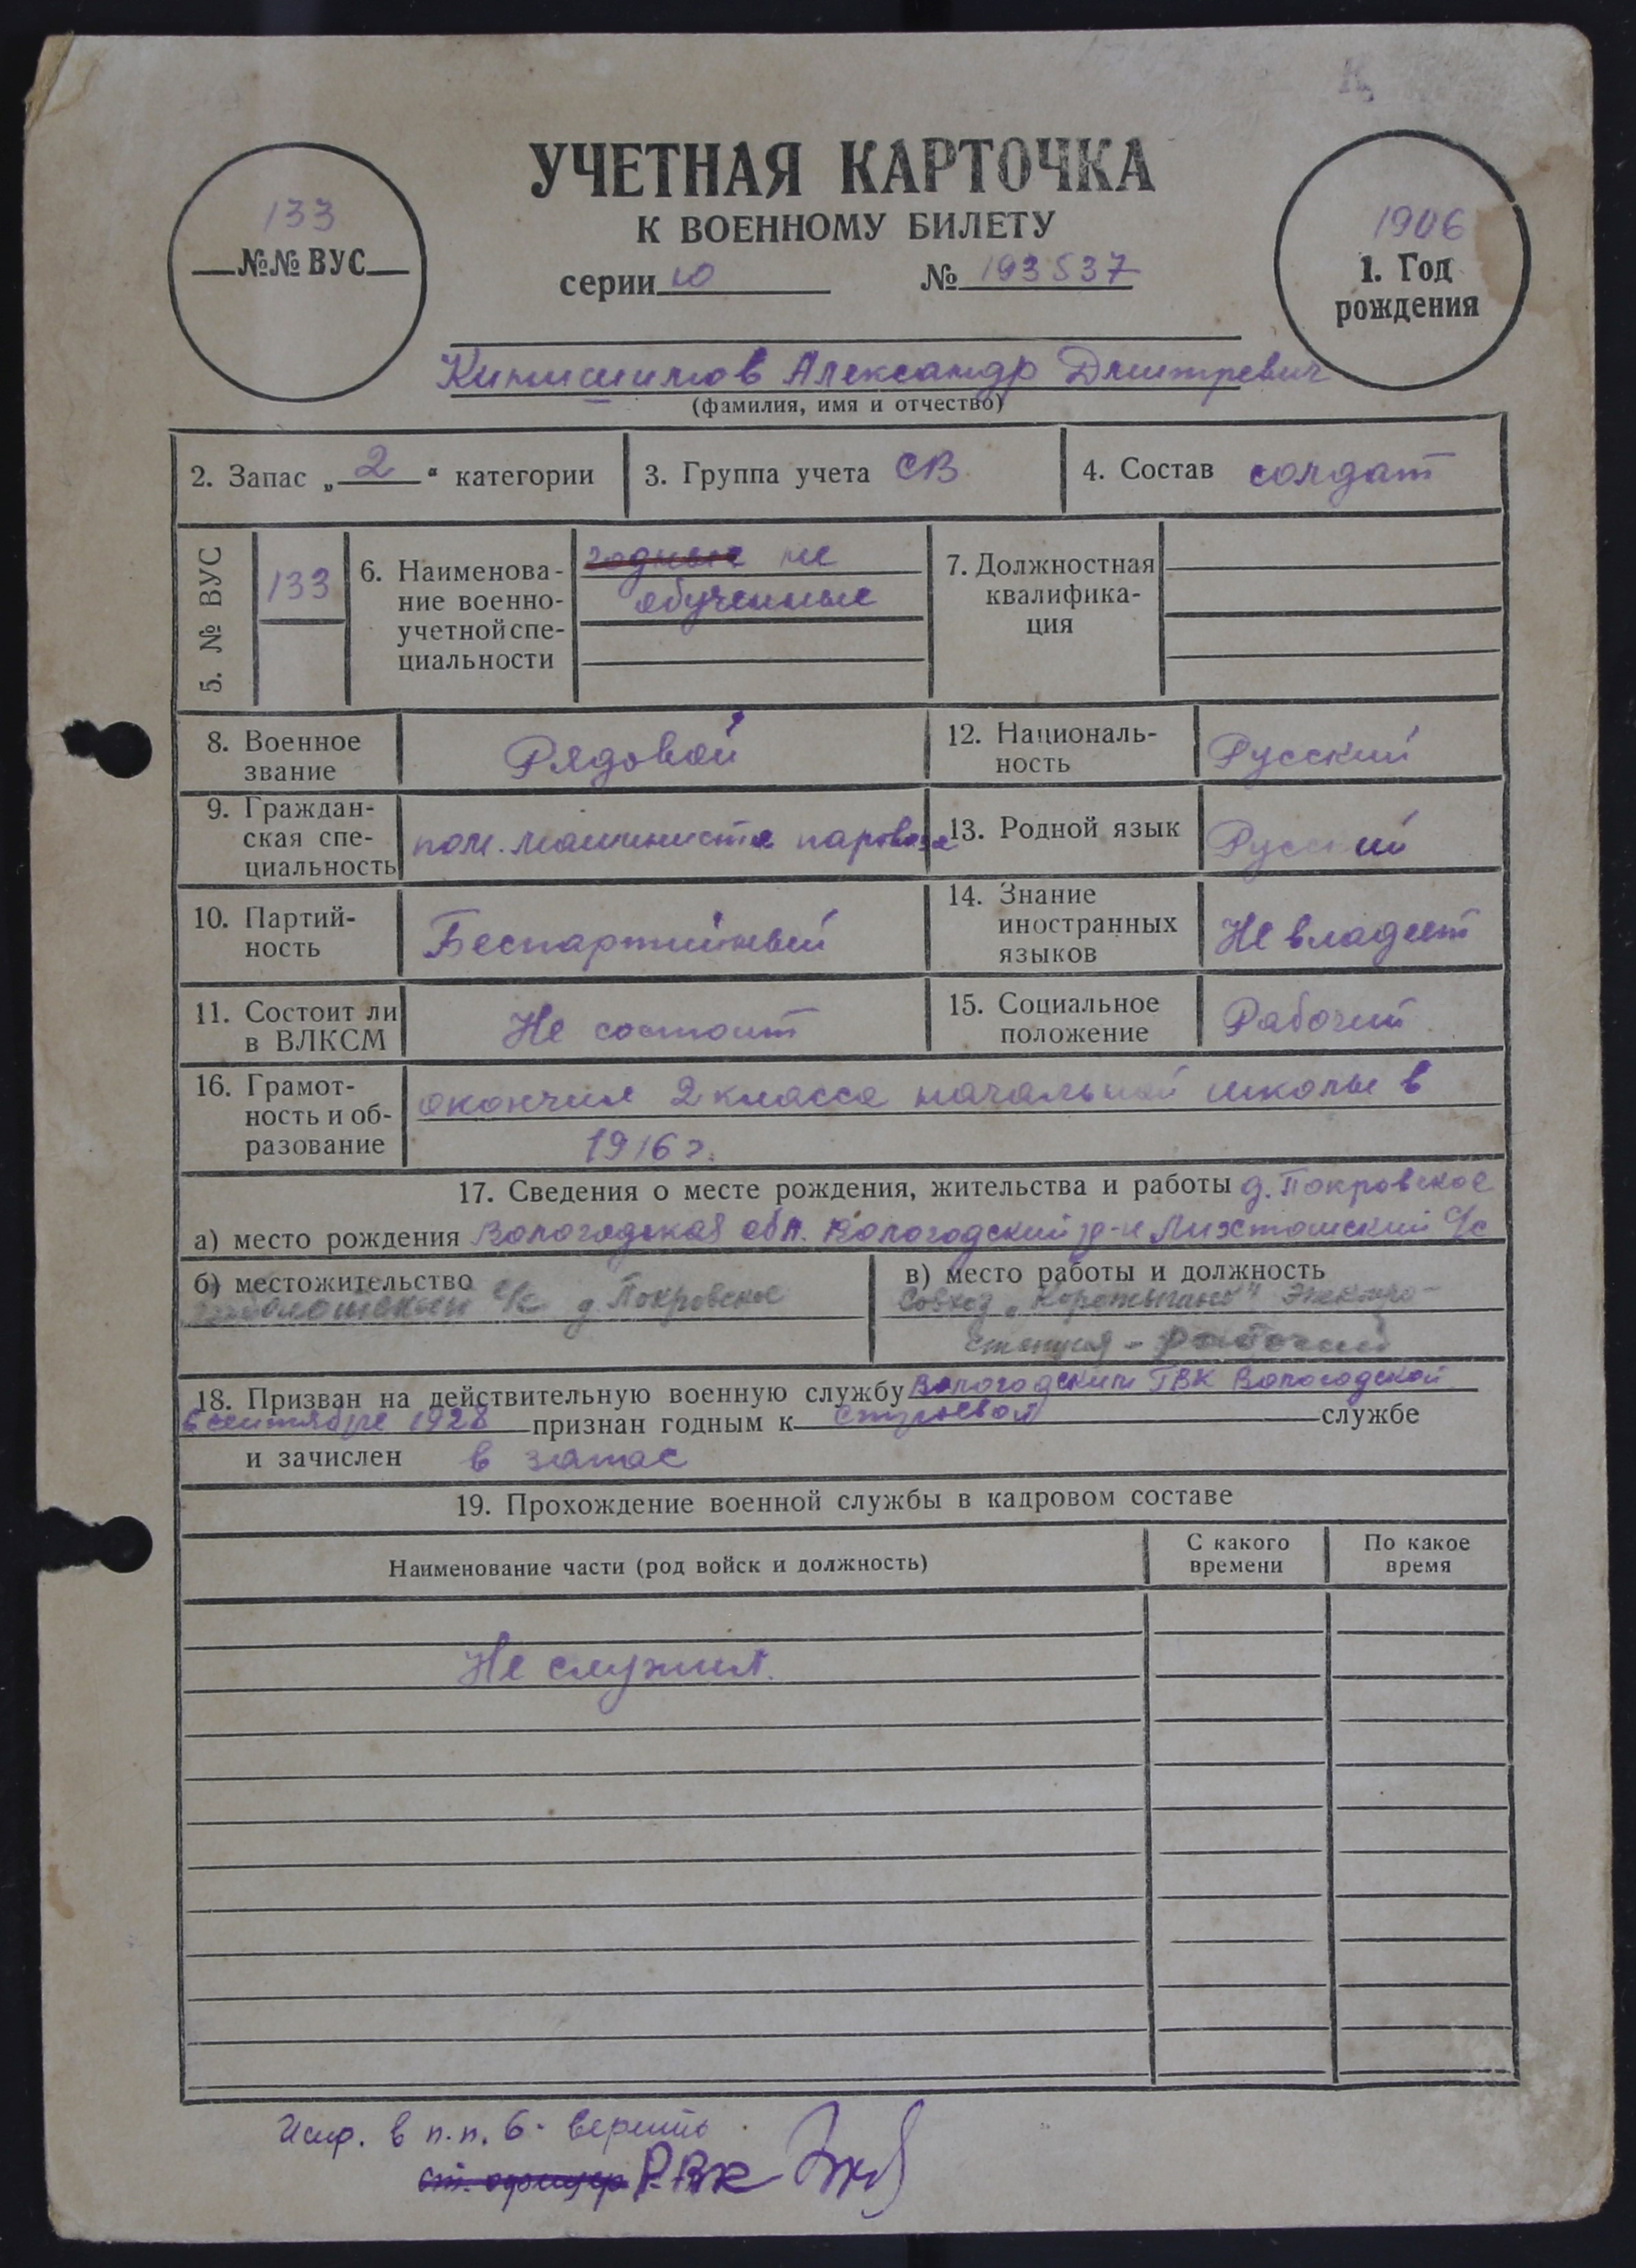 УЧЕТНАЯ КАРТОЧКА
К ВОЕННОМУ БИЛЕТУ
серии Ю № 193537
133
№№ ВУС
1906
1. Год
рождения
Александр Дмитревич
(фамилия, имя и отчество)
2. Запас „ 2 “ категории
3. Группа учета СВ
4. Состав солдат
5. № ВУС
133
6. Наименова-
ние военно-
учетной спе-
циальности
годные не
обученные
7. Должностная
квалифика-
ция
8. Военное
звание
Рядовой
12. Националь-
ность
Русский
9. Граждан-
ская спе-
циальность
пом. машиниста паровоза
13. Родной язык
Русский
10. Партий-
ность
Беспартийный
14. Знание
иностранных
языков
Не владеет
11. Состоит ли
в ВЛКСМ
Не состоит
15. Социальное
положение
Рабочий
16. Грамот-
ность и об-
разование
окончил 2 класса начальной школы в
1916 г.
17. Сведения о месте рождения, жительства и работы д. Покровское
а) место рождения Вологодская обл. Вологодский р-н с/с
б) местожительство
с/с д. Покровское
в) место работы и должность
Совхоз Электро-
станция - рабочий
18. Призван на действительную военную службу Вологодским ГВК Вологодской
В сентябре 1928 признан годным к строевой службе
и зачислен в запас
19. Прохождение военной службы в кадровом составе
Наименование части (род войск и должность)
С какого
времени
По какое
время
Не служил.
Испр. в п.п. 6 - верить
ст. офицер РВК